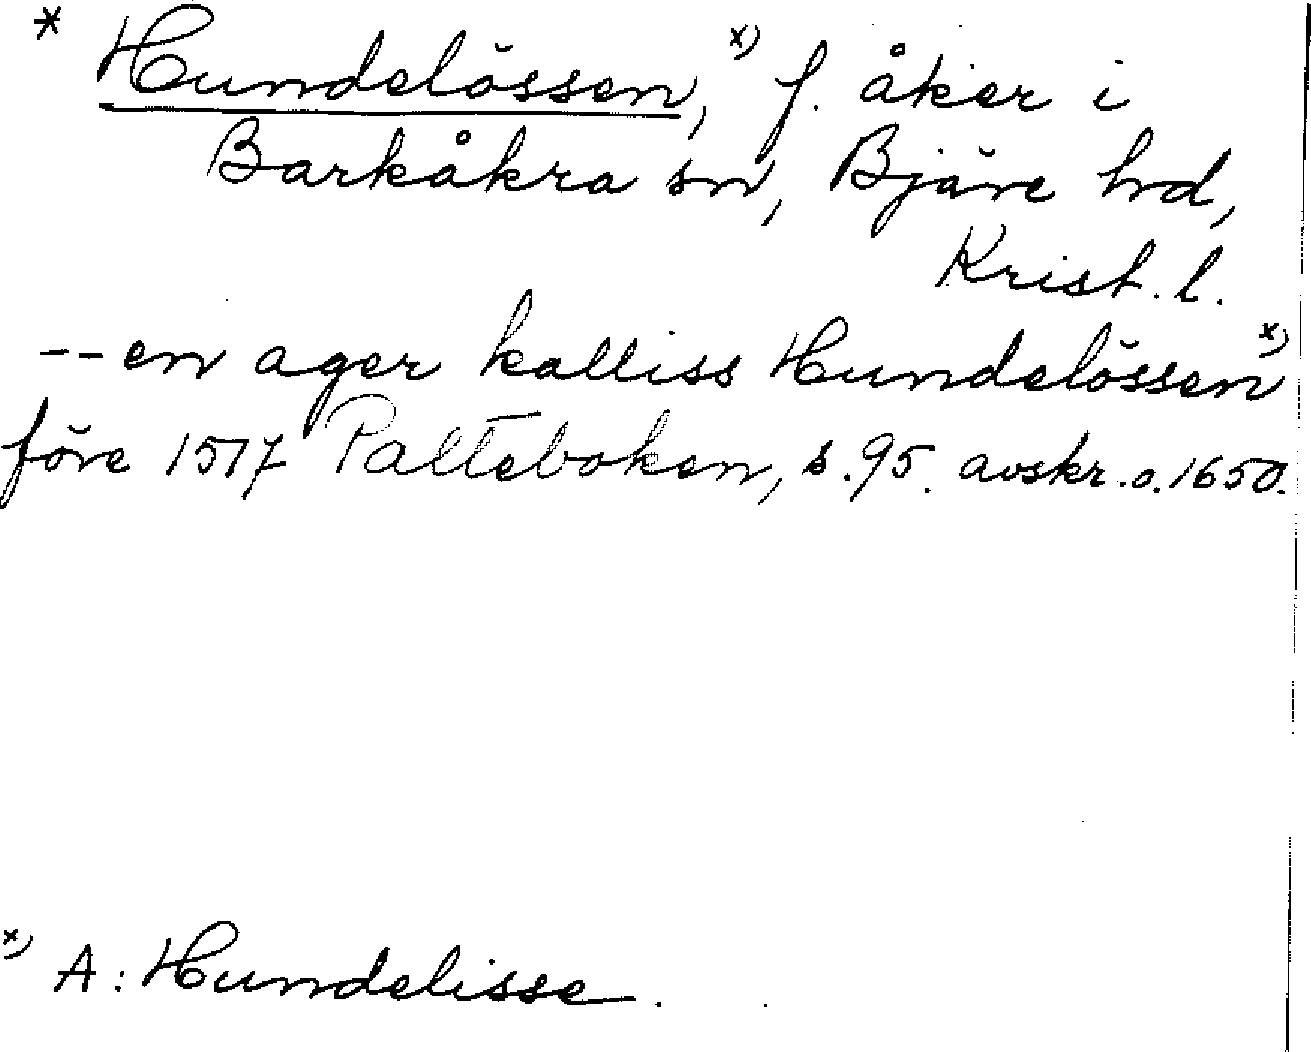 * Hundelössen,ˣ⁾ f. åker i
Barkåkra sn, Bjäre hrd,
Krist. l.
-- en ager kalliss Hundelössenˣ⁾
före 1517 Palteboken, s. 95. avskr. o. 1650.
ˣ⁾ A: Hundelisse.